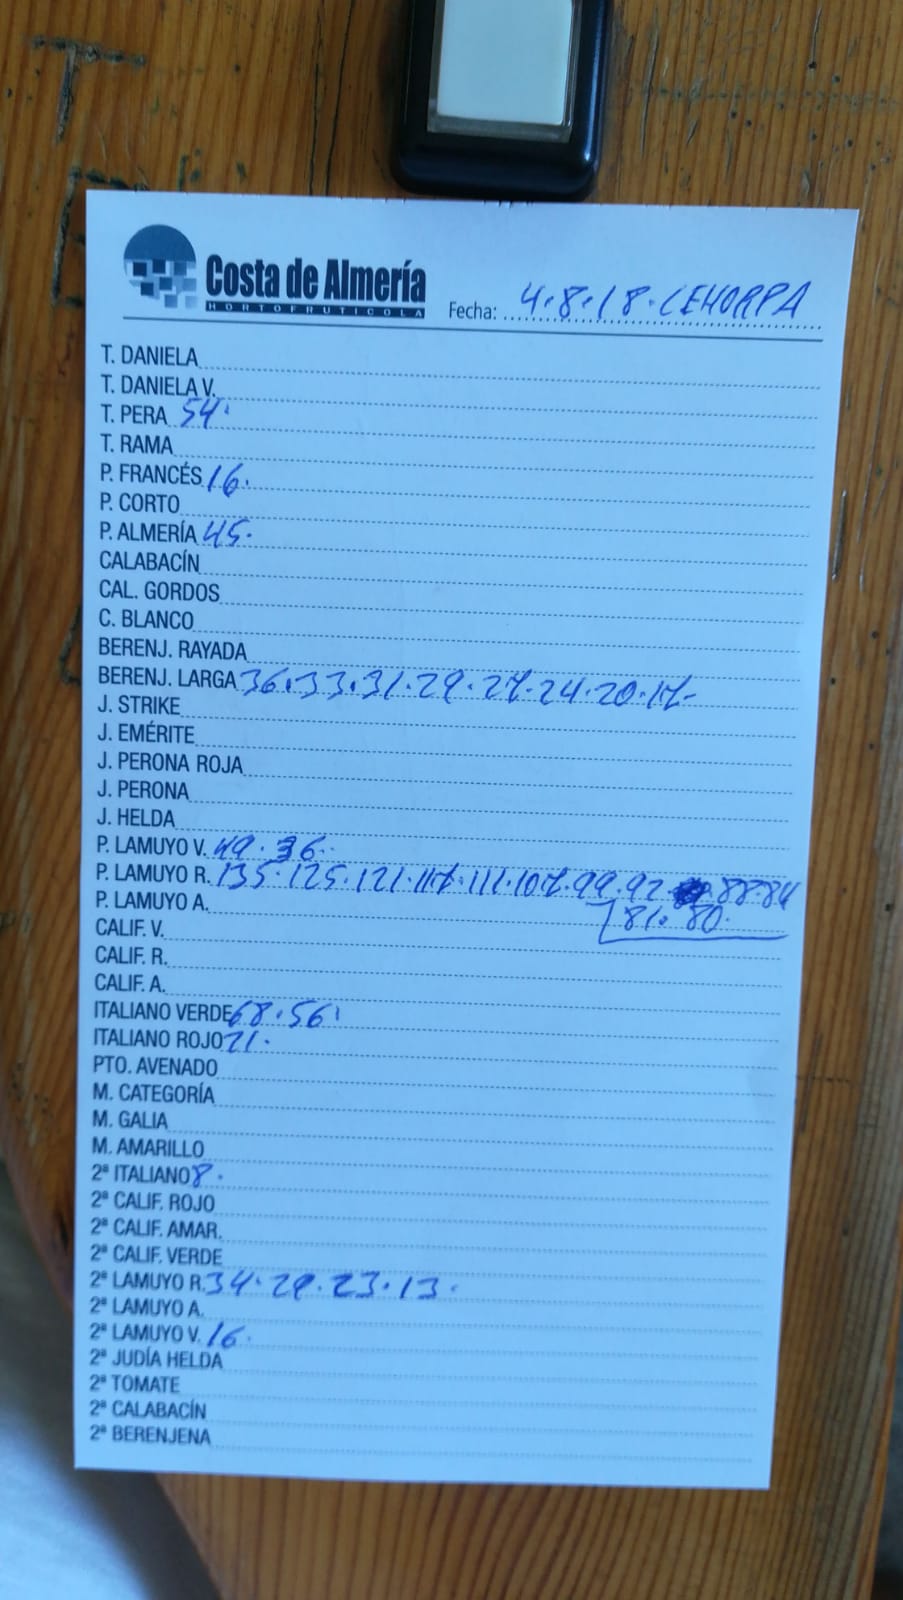 Costa de Almería
HORTOFRUTICOLA
Fecha: 4.8.18. CEHORPA
T. DANIELA
T. DANIELA V.
T. PERA 54.
T. RAMA
P. FRANCÉS 16.
P. CORTO
P. ALMERÍA 45.
CALABACÍN
CAL. GORDOS
C. BLANCO
BERENJ. RAYADA
BERENJ. LARGA 36.33.31.29.27.24.20.17-
J. STRIKE
J. EMÉRITE
J. PERONA ROJA
J. PERONA
J. HELDA
P. LAMUYO V. 49.36.
P. LAMUYO R. 135.125.121.117.111.107.99.92 88.84
P. LAMUYO A. 81.80.
CALIF. V.
CALIF. R.
CALIF. A.
ITALIANO VERDE 68.56.
ITALIANO ROJO 21.
PTO. AVENADO
M. CATEGORÍA
M. GALIA
M. AMARILLO
2ª ITALIANO 8.
2ª CALIF. ROJO
2ª CALIF. AMAR.
2ª CALIF. VERDE
2ª LAMUYO R. 34.29.23.13.
2ª LAMUYO A.
2ª LAMUYO V. 16.
2ª JUDÍA HELDA
2ª TOMATE
2ª CALABACÍN
2ª BERENJENA